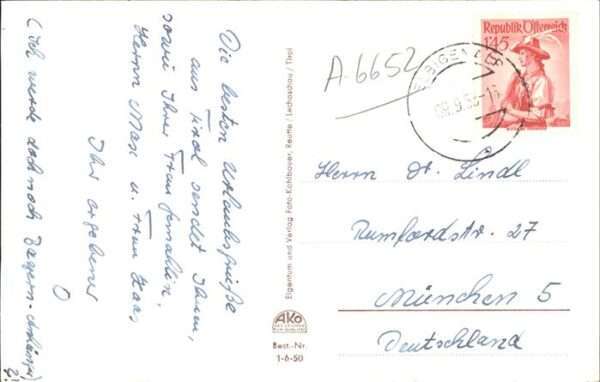 Die besten Urlaubsgrüße
aus Tirol sendet Ihnen,
sowie Ihrer Frau Gemahlin,
Herrn Max u. Frau Haas
Ihr ergebener
(ich werde doch noch Bayern-Anhänger)
2!
A-6652
Republik Österreich
1'45
Eigentum und Verlag Foto-Kohlbauer, Reutte / Lechaschau / Tirol
AKO
Best.-Nr.
1-6-50
Herrn Dr. Lindl
Rumfordstr. 27
München 5
Deutschland